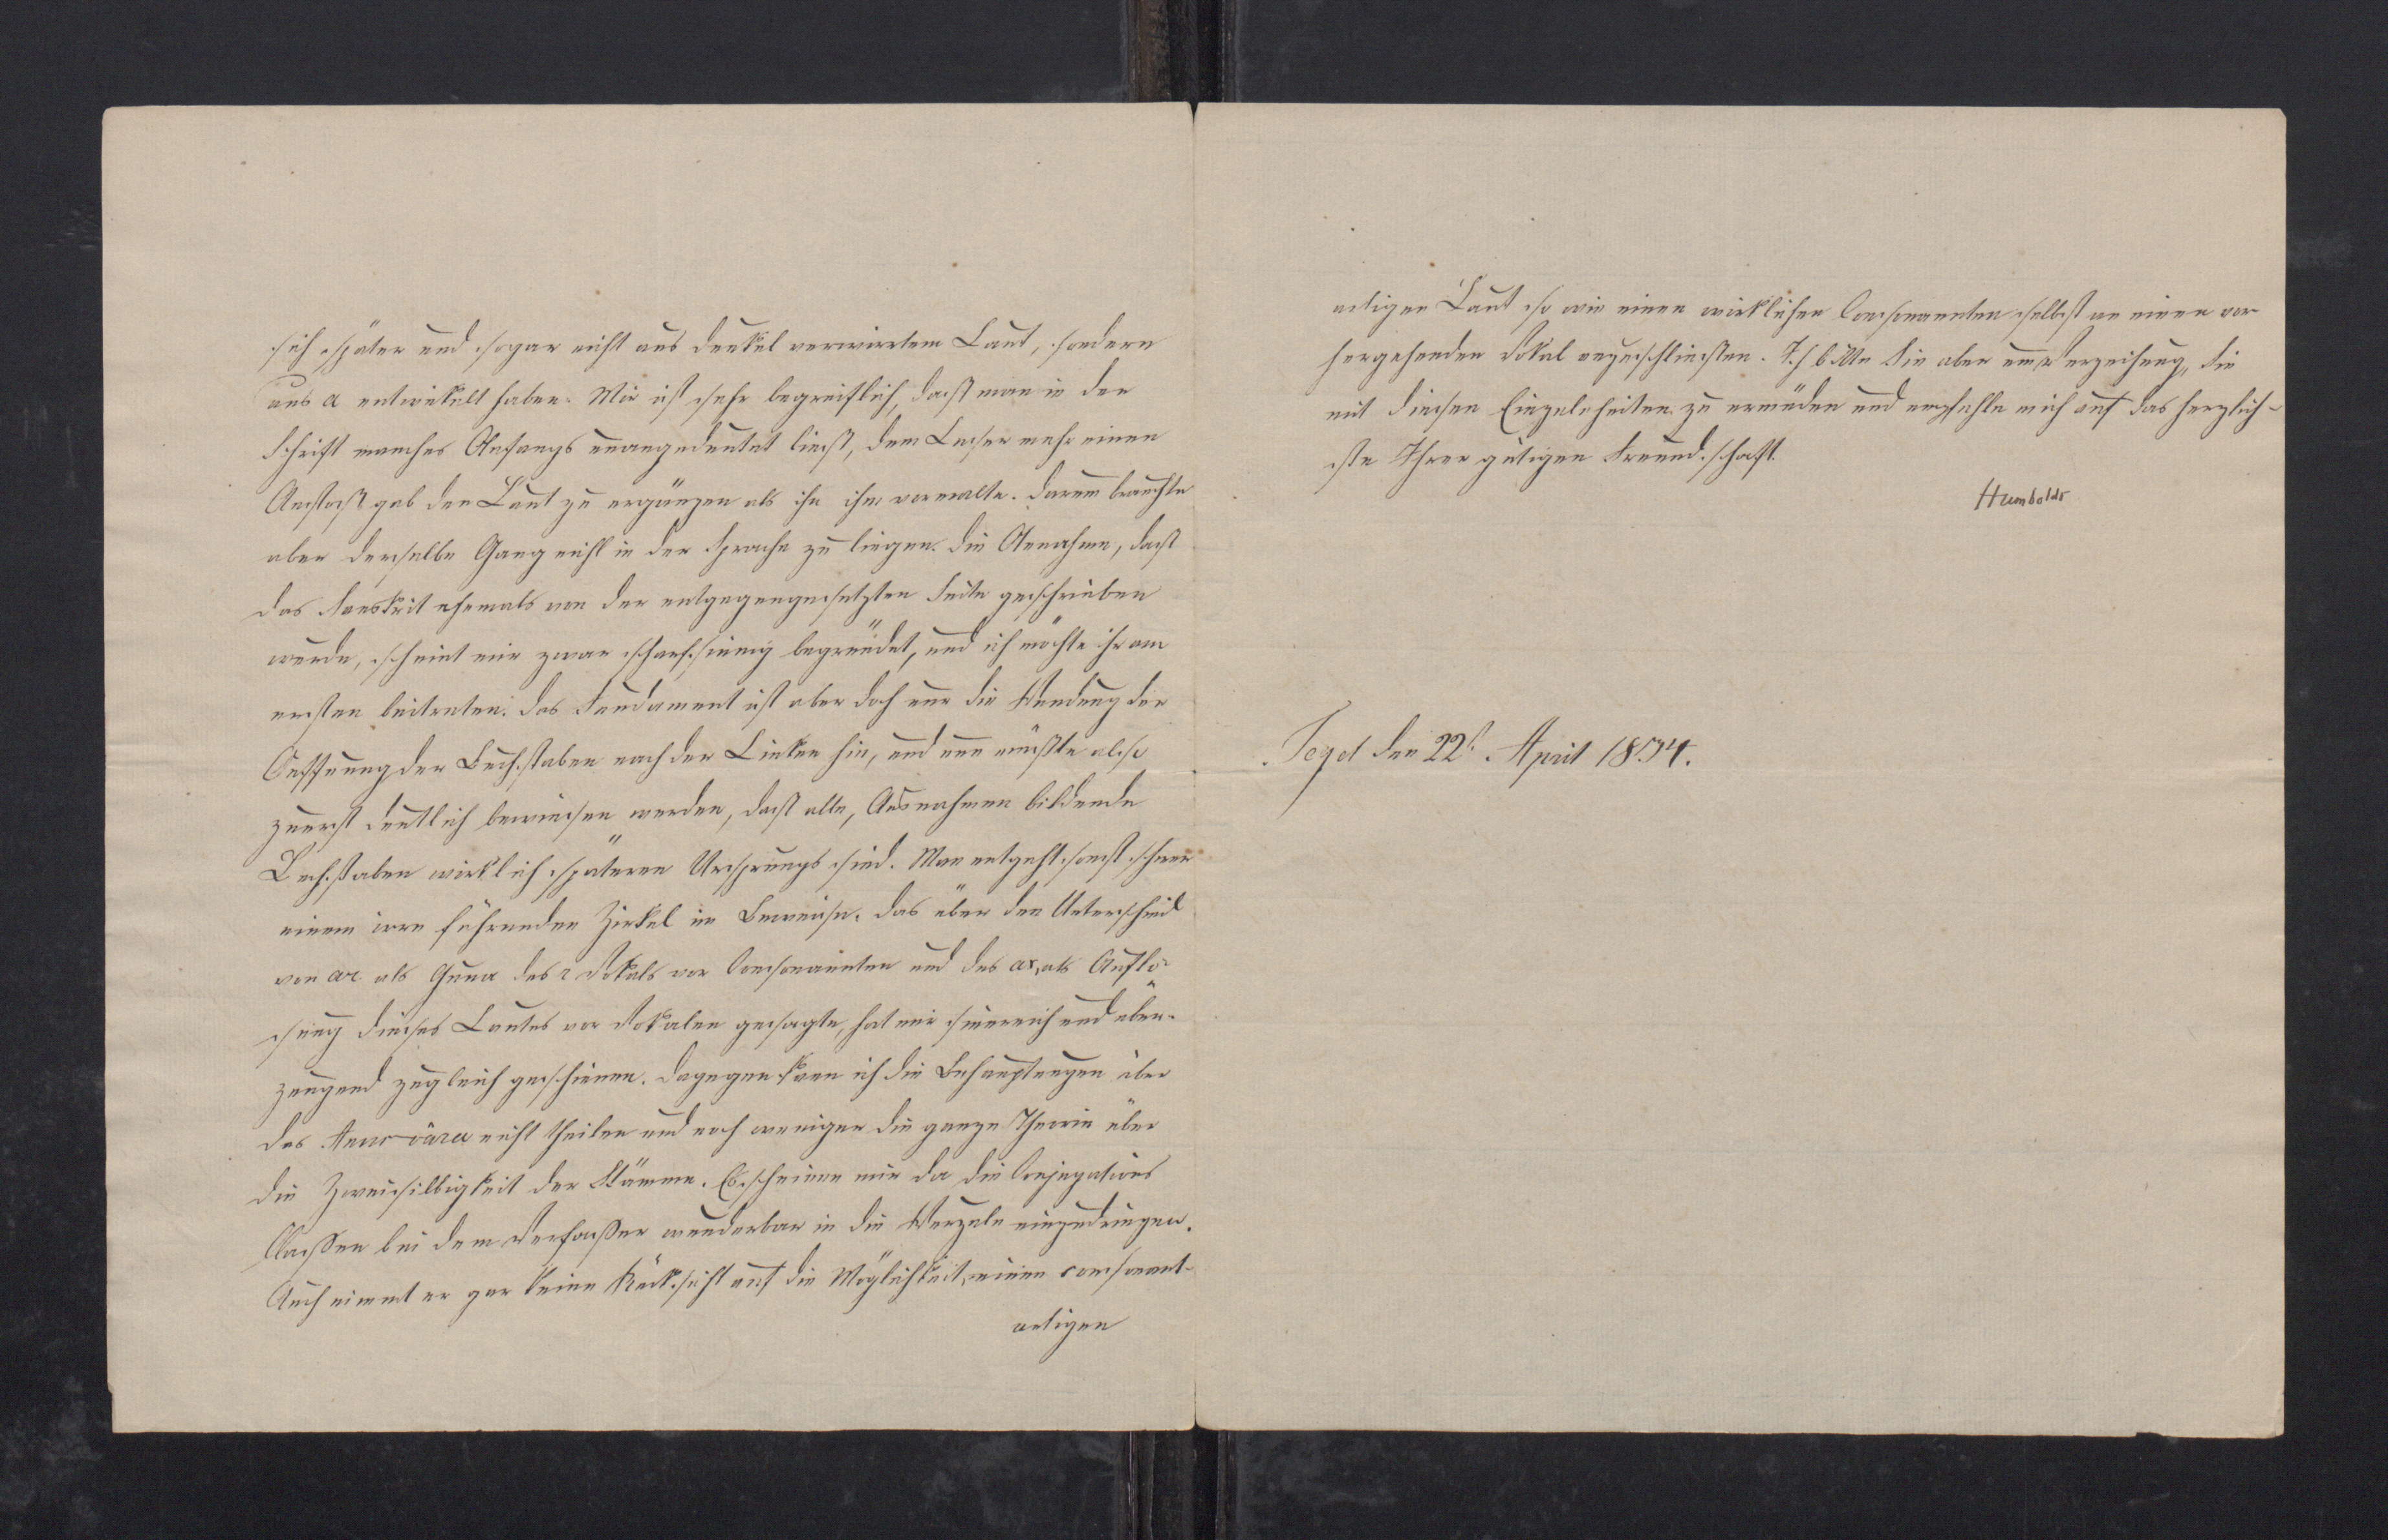 sich später und sogar nicht aus dunkel verwirrtem Laut, sondern
aus a entwickelt haben. Mir ist sehr begreiflich, daß man in der
Schrift manches Anfangs unangedeutet ließ, dem Leser mehr einen
Anstoß gab den Laut zu ergänzen als ihn ihm vormalte. Darum brauchte
aber derselbe Gang nicht in der Sprache zu liegen. Die Annahme, daß
das Sanskrit ehemals von der entgegengesetzten Seite geschrieben
wurde, scheint mir zwar scharfsinnig begründet, und ich möchte ihr am
ersten beitreten. Das Fundament ist aber doch nur die Wendung der
Oeffnung der Buchstaben nach der Linken hin, und nun müßte also
zuerst deutlich bewiesen werden, daß alle, Ausnahmen bildende
Buchstaben wirklich späteren Ursprungs sind. Man entgeht sonst schwer
einem irre führenden Zirkel im Beweise. Das über den Unterschied
von ar als Guna des r Vokals vor Consonanten und des ar, als Auflö-
sung dieses Lautes vor Vokalen gesagte, hat mir sinnreich und über-
zeugend zugleich geschienen. Dagegen kann ich die Behauptungen über
das Anusvâra nicht theilen und noch weniger die ganze Theorie über
die Zweisilbigkeit der Stämme. Es scheinen mir da die Conjugations
Classen bei dem Verfasser wunderbar in die Wurzeln einzudringen.
Auch nimmt er gar keine Rücksicht auf die Möglichkeit, einen consonant-
artigen
artigen Laut so wie einen wirklichen Consonanten selbst an einen vor
hergehenden Vokal anzuschließen. Ich bitte Sie aber um Verzeihung, Sie
mit diesen Einzelnheiten zu ermüden und empfehle mich auf das herzlich-
ste Ihrer gütigen Freundschaft.
Humboldt
Tegel den 22t. April 1834.